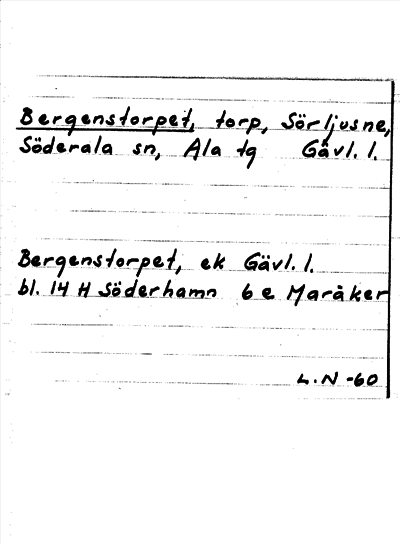 Bergenstorpet, torp, Sörljusne,
Söderala sn, Ala tg Gävl. l.
Bergenstorpet, ek Gävl. l.
bl. 14 H Söderhamn 6 e Maråker
L. N -60